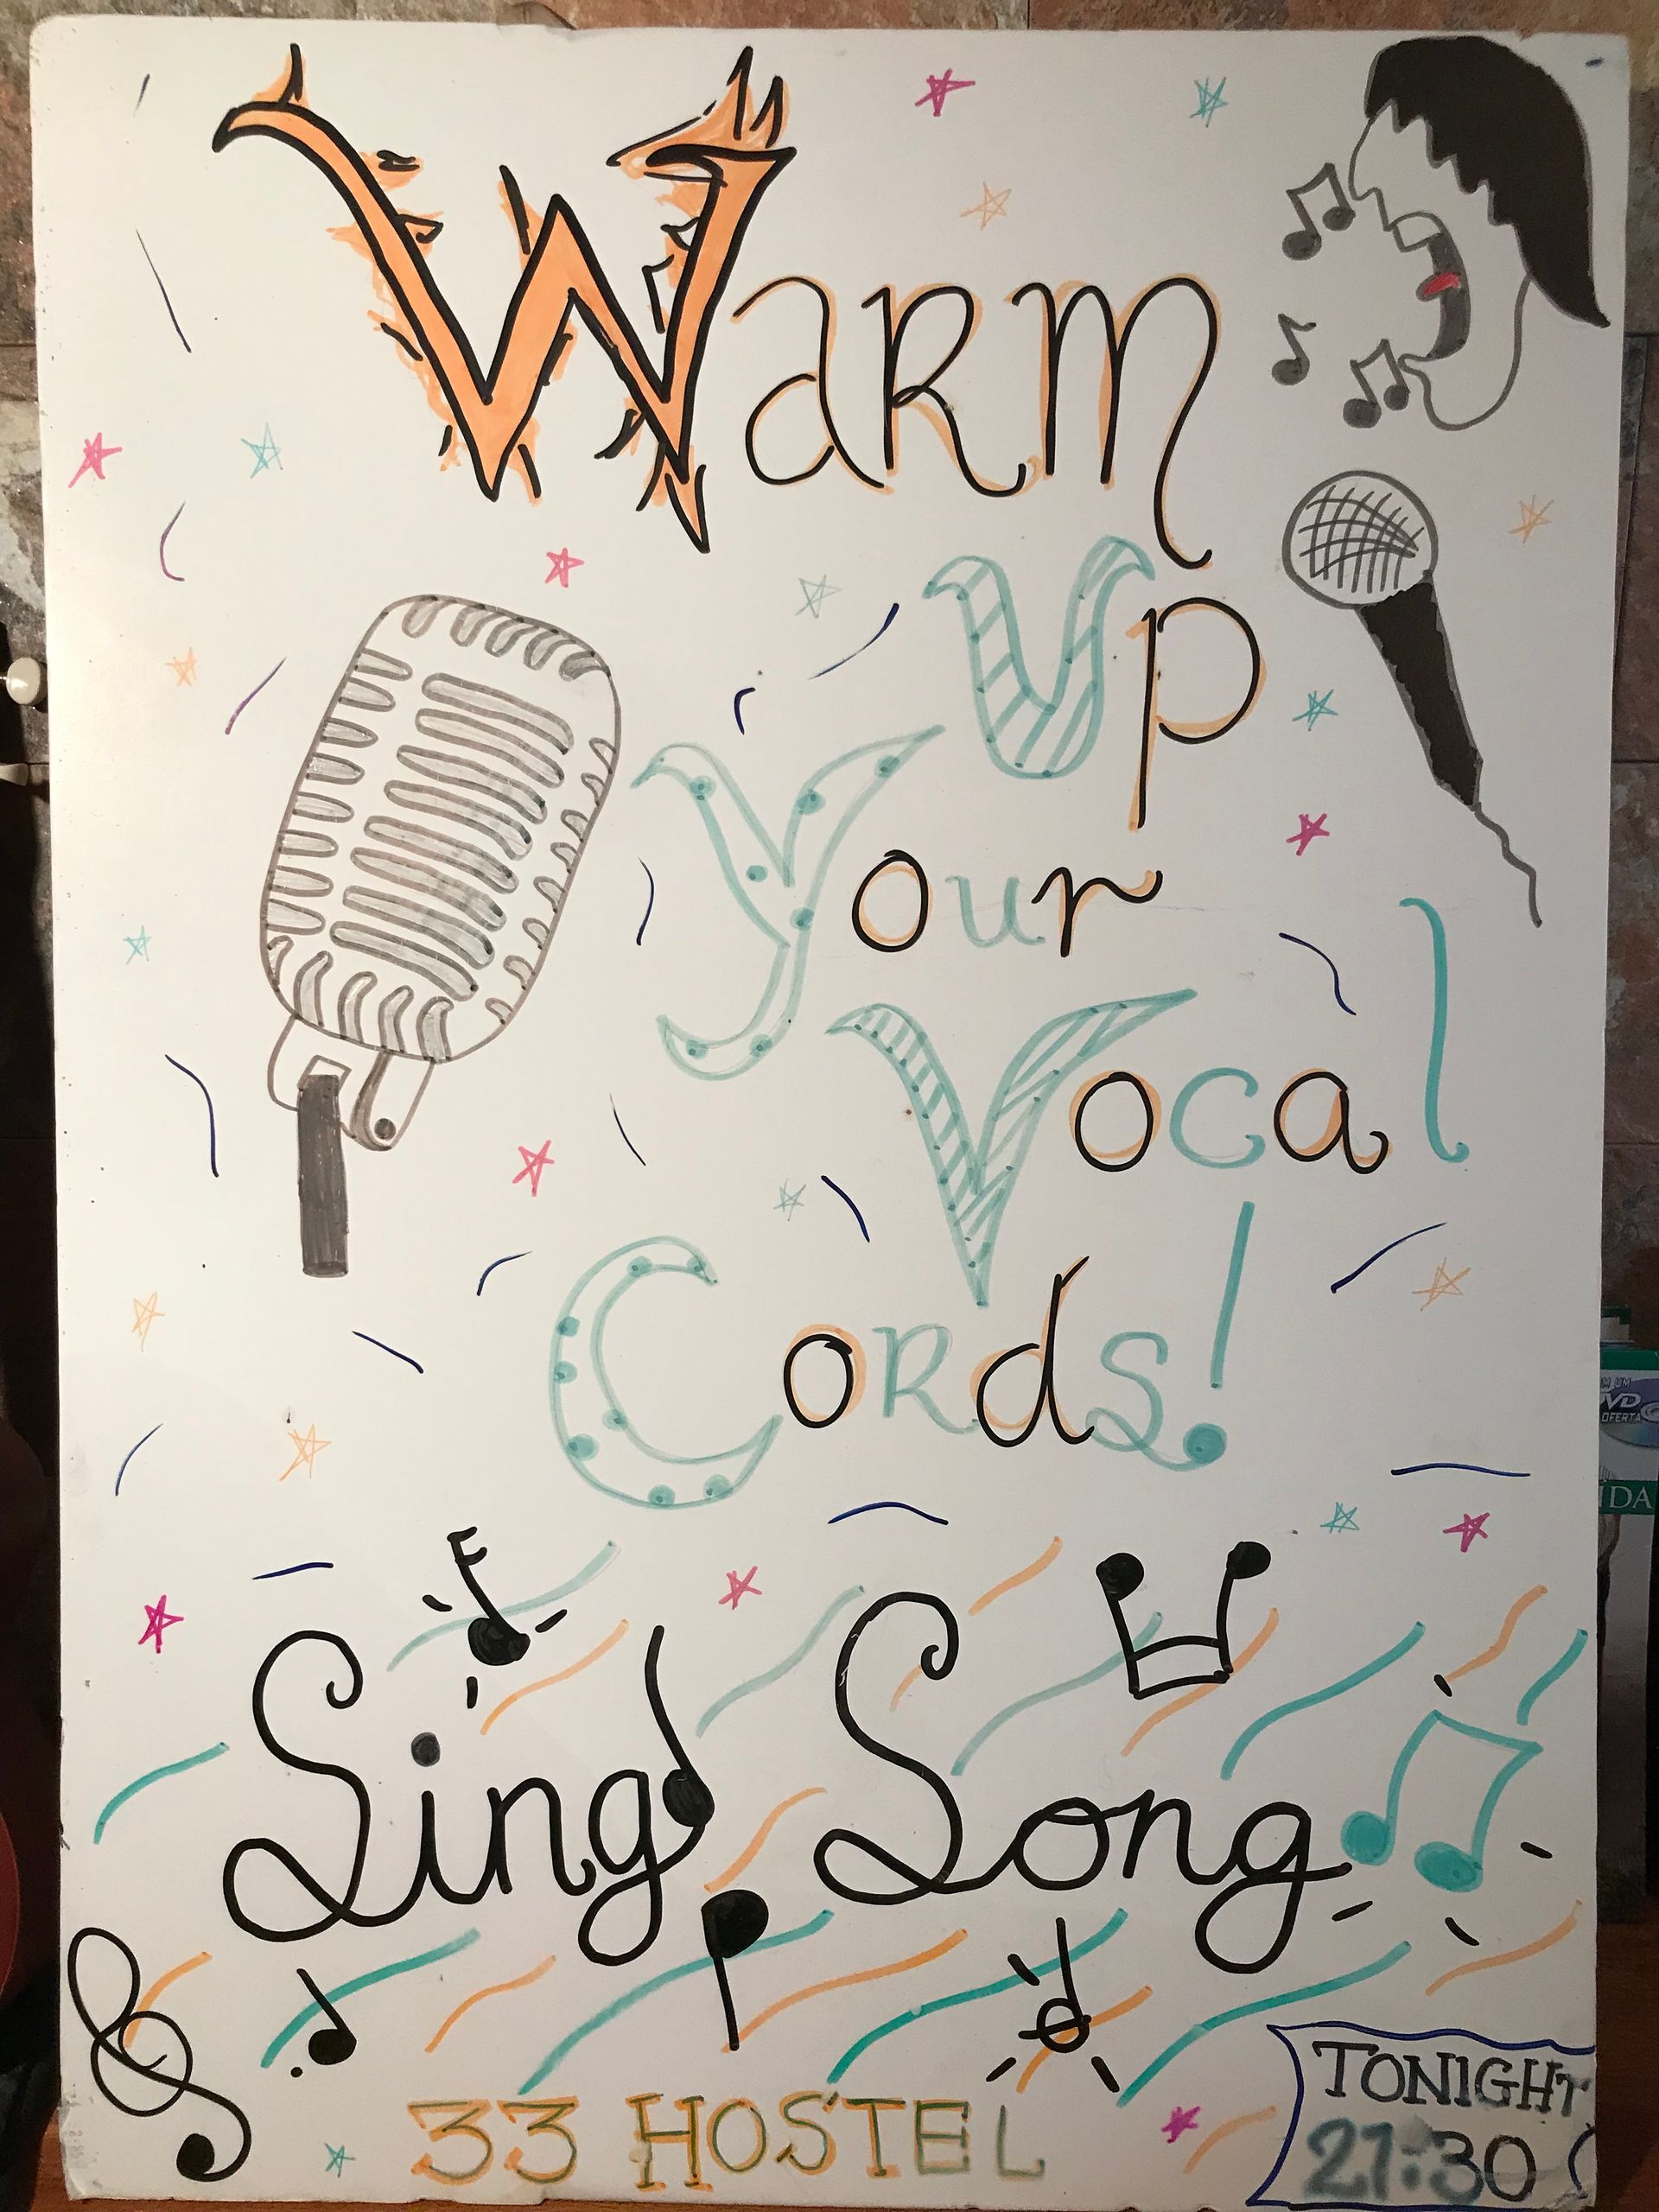 Warm
Up
Your
Vocal
Cords!
Sing Song
33 HOSTEL
TONIGHT
21:30
DVD
OFERTA